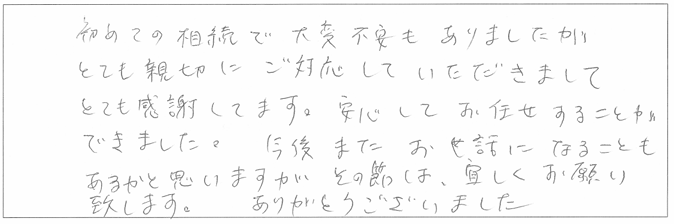 初めての相続で大変不安もありましたが
とても親切にご対応していただきまして
とても感謝してます。安心してお任せすることが
できました。 今後またお世話になることも
あるかと思いますがその節は、宜しくお願い
致します。 ありがとうございました